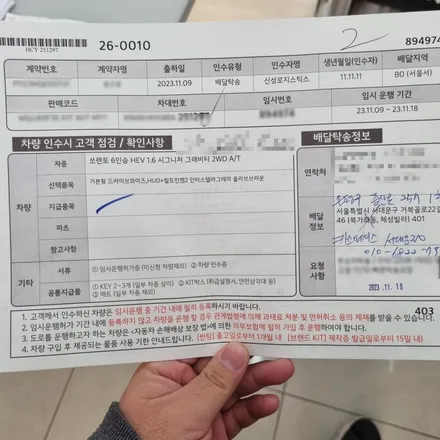 HCY 251297
26-0010
2
894974
계약번호 계약자명 출하일 인수유형 인수자명 생년월일(인수자) 배달지역
2023.11.09 배달탁송 신성로지스틱스 11.11.11 B0 (서울서)
판매코드 차대번호 임시번호 임시 운행 기간
251297 894974 23.11.09 ~ 23.11.18
차량 인수시 고객 점검 / 확인사항
배달탁송정보
차량
차종 쏘렌토 6인승 HEV 1.6 시그니처 그래비티 2WD A/T
선택품목 기본형 드라이브와이즈,HUD+빌트인캠2 인터스텔라그레이 올리브브라운
지급품목
파츠
참고사항
기타
서류 ① 임시운행허가증 (미신청 차량제외) ② 차량 인수증
공통지급품 ① KEY 2~3개 (일부 차종 상이) ② KIT박스 (취급설명서, 안전삼각대 등)
③ 매트 (일부 차종 제외)
연락처
배달
정보
서울특별시 서대문구 거북골로22길
46 (북가좌동, 혜성빌라) 401
요청
사항
2023.11.10
403
1. 고객께서 인수하신 차량은 임시운행 중 기간 내에 필히 등록하시기 바랍니다.
2. 임시운행허가 기간 내에 등록하지 않고 차량을 운행 할 경우 관계법령에 의해 과태료 처분 및 면허취소 등의 제재를 받을 수 있습니다.
3. 도로를 운행하고자 하는 차량은 <자동차 손해배상 보장 법>에 의한 의무보험에 필히 가입 후 운행하여야 합니다.
4. 차량 구입 후 제공되는 물품 사용 기한 안내드립니다. [썬팅] 출고일로부터 1개월 내 [브랜드 KIT] 제작증 발급일로부터 15일 내)